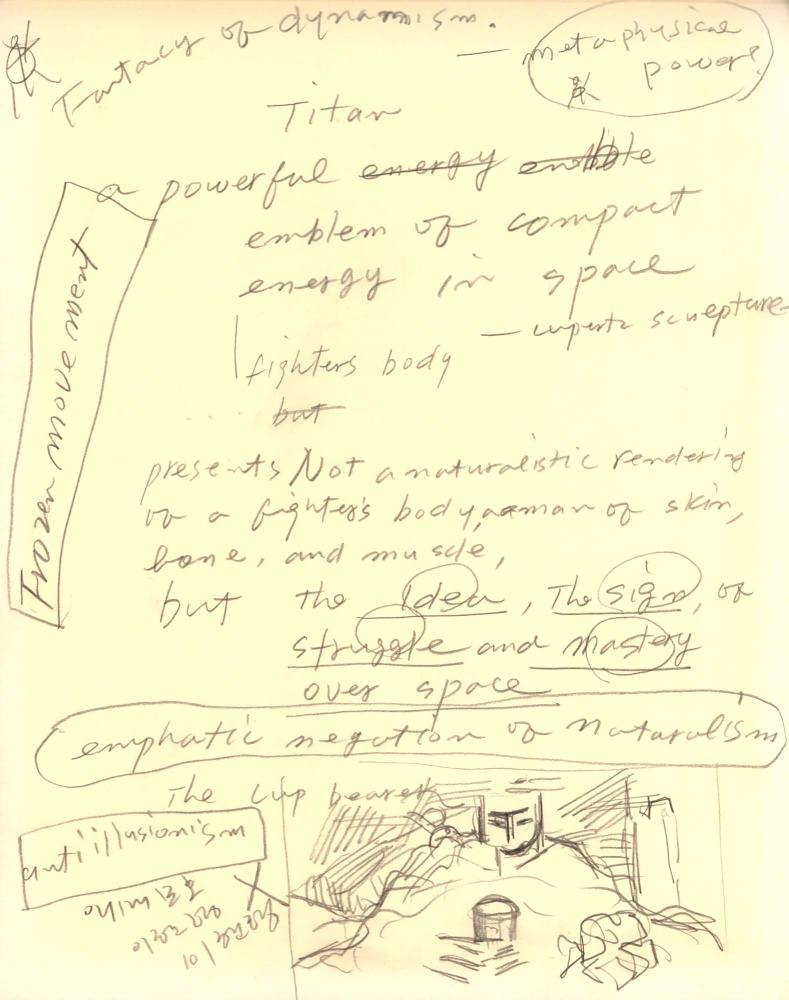 Fantacy of dynamism.
— metaphysical
power?
Titan
a powerful energy
emblem of compact
energy in space
— sculpture
fighters body
but
Frozen movement
presents Not a naturalistic rendering
of a fighter's body, a man of skin,
bone, and muscle,
but the idea, The sign, of
struggle and mastery
over space
emphatic negation of Naturalism
The Cup bearer
anti illusionism